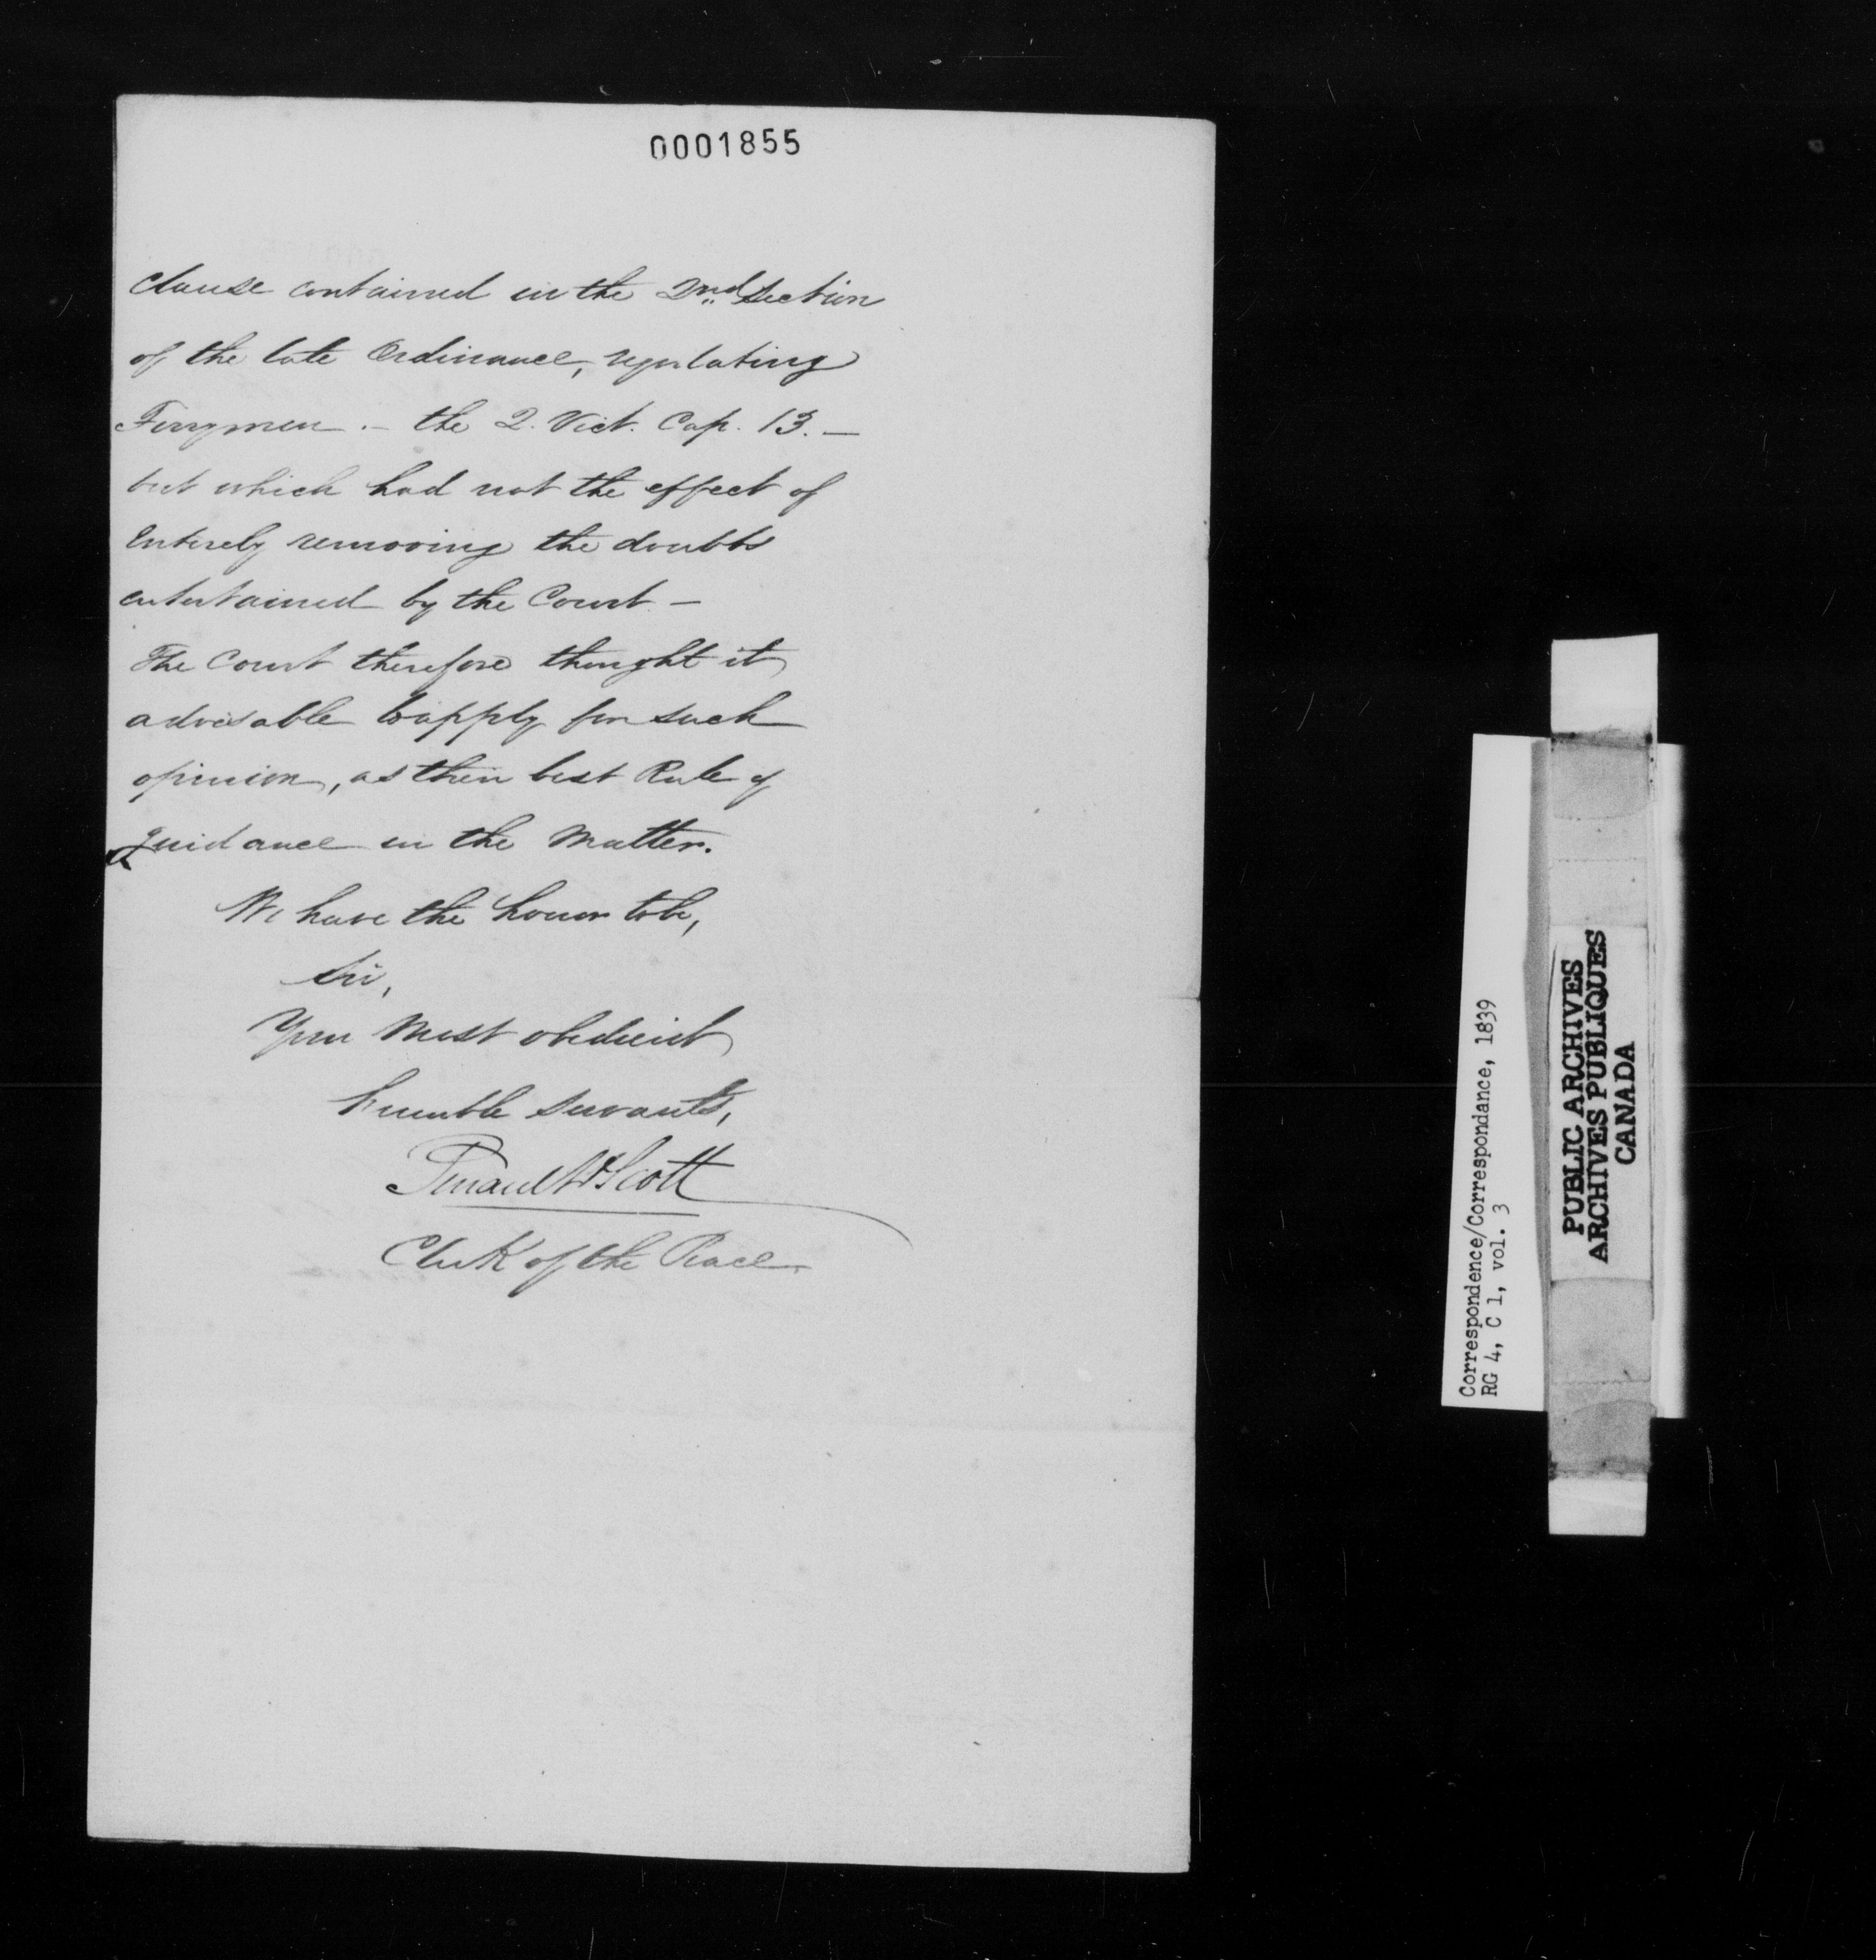 0001855
Clause contained in the 2nd Section
of the late Ordinance, regulating
Ferrymen. - the 2. Vict. Cap. 13. -
but which had not the effect of
Entirely removing the doubts
entertained by the Court. -
The Court therefore thought it
advisable to apply for such
opinion, as their best Rule of
guidance in the Matter.
We have the honor to be,
Sir,
Your Most obedient
humble servants,
Perrault & Scott
Clerk of the Peace
Correspondence/Correspondance, 1839
RG 4, C 1, vol. 3
PUBLIC ARCHIVES
ARCHIVES PUBLIQUES
CANADA